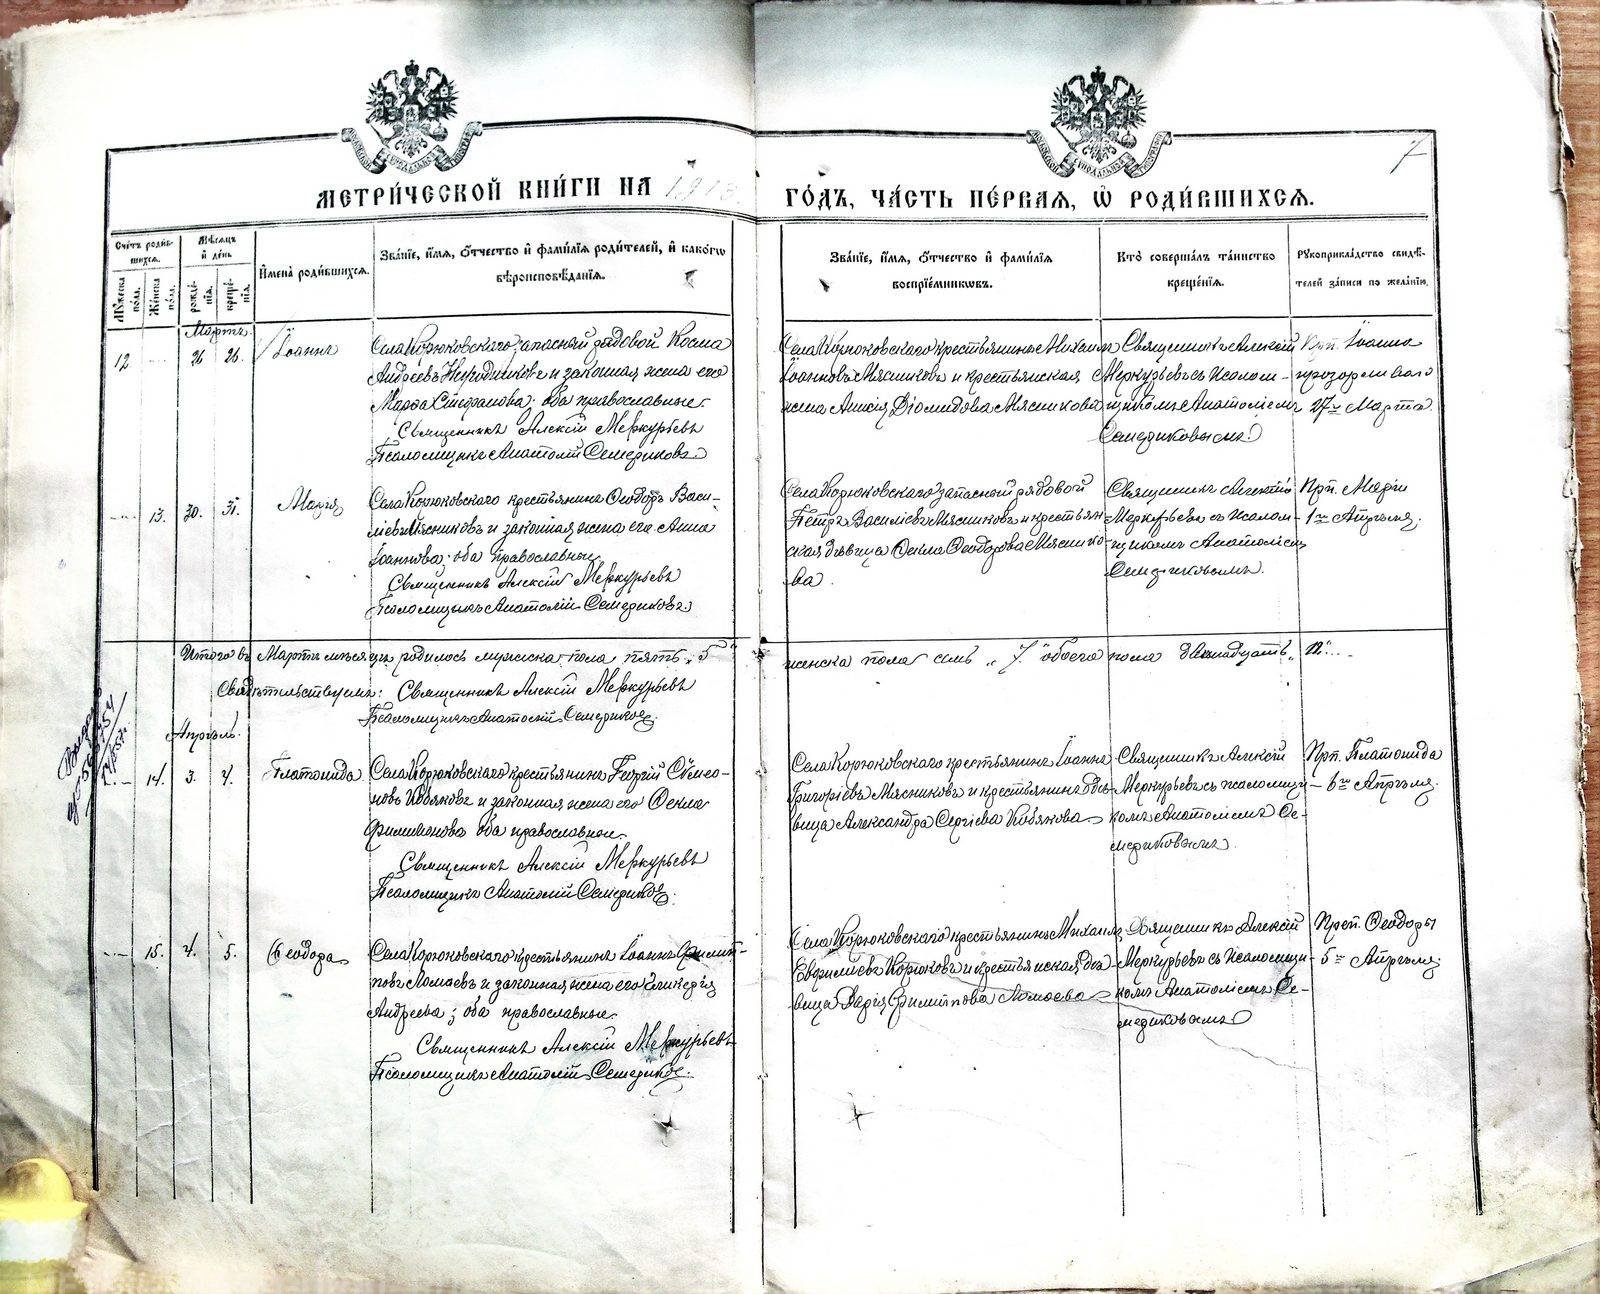 МЕТРИ́ЧЕСКОЙ КНИ́ГИ НА 1913 ГО́ДЪ, ЧА́СТЬ ПЕ́РВАЯ, Ѡ РОДИ́ВШИХСЯ.
7
Сче́тъ роди́в-
шихся.
Мѣ́сяцъ
и́ де́нь
Му́жеска по́ла.
Же́нска по́ла.
рожде́-
нія.
креще́-
нія.
И́мена̀ роди́вшихся.
Зва́ніе, и́мя, о́тчество и́ фами́лія роди́телей, и́ како́гѡ
вѣроисповѣ́данія.
Зва́ніе, и́мя, о́тчество и́ фами́лія
воспріе́мникѡвъ.
Кто̀ соверша́лъ та́инство
креще́нія.
Рукоприкла́дство свидѣ́-
телей за́писи по жела́нію.
Мартъ.
12
26
26.
Іоаннъ
Села Корюковскаго запасный рядовой Косма
Андреевъ и законная жена его
Марѳа Стефанова; оба православные.
Священникъ Алексій Меркурьевъ
Псаломщикъ Анатолій Семериковъ.
Села Корюковскаго крестьянинъ Михаилъ
Іоанновъ Мясниковъ и крестьянская
жена Анисія Діомидова Мясникова
Священникъ Алексій
Меркурьевъ съ псалом-
щикомъ Анатоліемъ
Семериковымъ.
Прп. Іоанна
прозорливаго
27го Марта.
13.
30.
31.
Марія
Села Корюковскаго крестьянинъ Ѳеодоръ Васи-
льевъ Мясниковъ и законная жена его Анна
Іоаннова; оба православные.
Священникъ Алексій Меркурьевъ
Псаломщикъ Анатолій Семериковъ
Села Корюковскаго запасный рядовой
Петръ Васильевъ Мясниковъ и крестьян-
ская дѣвица Ѳекла Ѳеодорова Мяснико-
ва.
Священникъ Алексій
Меркурьевъ съ псалом-
щикомъ Анатоліемъ
Семериковымъ.
Прп. Маріи
1го Апрѣля.
Итого въ Мартѣ мѣсяцѣ родилось мужеска пола пять „5" женска пола семь „7" обоего пола двенадцать „12".
Свидѣтельствуемъ: Священникъ Алексій Меркурьевъ
Псаломщикъ Анатолій Семериковъ.
Апрѣль.
14.
3.
4.
Платонида
Села Корюковскаго крестьянинъ Георгій Сѵмео-
новъ Кобяковъ и законная жена его Ѳекла
Филимонова оба православные.
Священникъ Алексій Меркурьевъ
Псаломщикъ Анатолій Семериковъ.
Села Корюковскаго крестьянинъ Іоаннъ
Григоріевъ Мясниковъ и крестьянина дѣ-
вица Александра Сергіева Кобякова
Священникъ Алексій
Меркурьевъ съ псаломщи-
комъ Анатоліемъ Се-
мериковымъ.
Прп. Платонида
6го Апрѣля.
15.
4.
5.
Ѳеодора
Села Корюковскаго крестьянинъ Іоаннъ Филип-
повъ Ломаевъ и законная жена его Гликерія
Андреева; оба православные.
Священникъ Алексій Меркурьевъ
Псаломщикъ Анатолій Семериковъ.
Села Корюковскаго крестьянинъ Михаилъ
Корюковъ и крестьянская дѣ-
вица Дарія Филиппова Ломаева
Священникъ Алексій
Меркурьевъ съ псаломщи-
комъ Анатоліемъ Се-
мериковымъ
Преп. Ѳеодоры
5го Апрѣля.